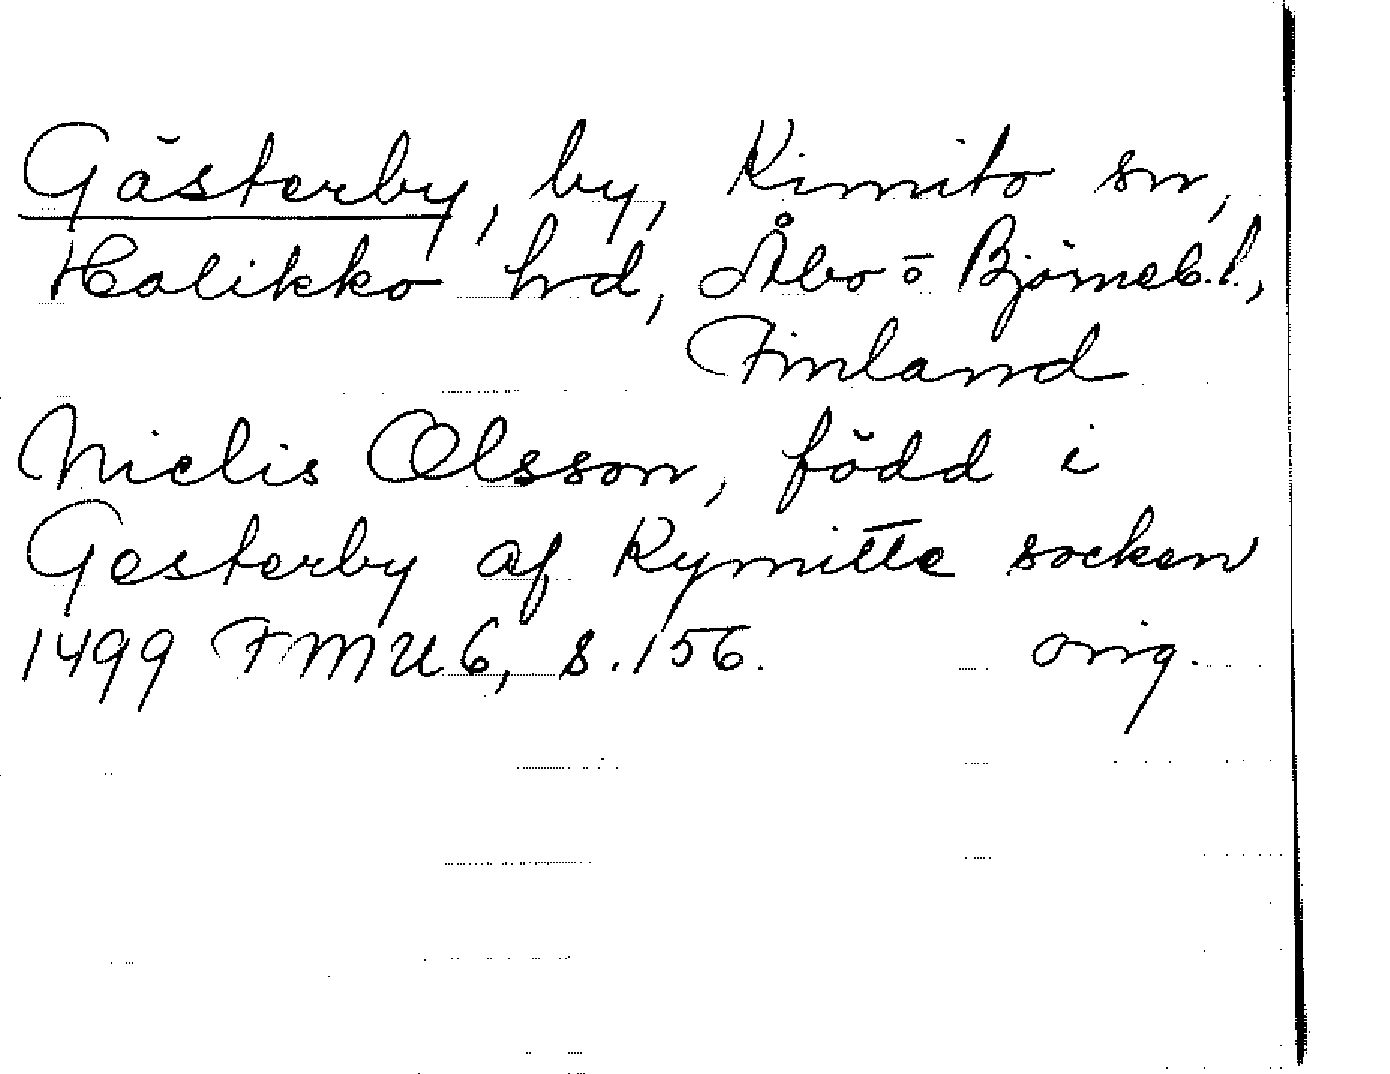 Gästerby, by, Kimito sn,
Halikko hrd, Åbo o Björneb. l.,
Finland
Nielis Olsson, född i
Gesterby af Kymitte socken
1499 FMU 6, s. 156. orig.